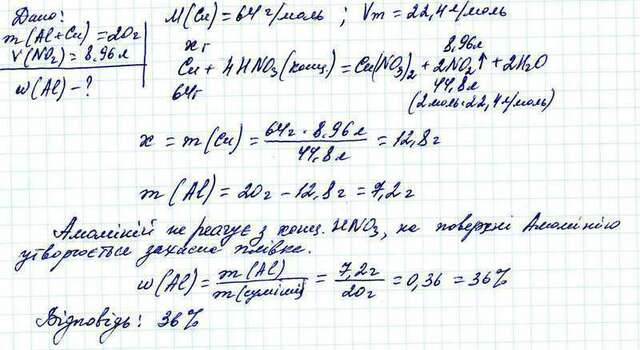 Дано:
m(Al+Cu)=20г
V(NO₂)=8,96л
w(Al)-?
M(Cu)=64 г/моль ; Vm=22,4л/моль
x г 8,96л
Cu + 4HNO₃(конц)=Cu(NO₃)₂+2NO₂↑+2H₂O
64г 44,8л
(2моль·22,4л/моль)
x = m(Cu) = 64г · 8,96л / 44,8л = 12,8г
m(Al) = 20г - 12,8г = 7,2г
Алюміній не реагує з конц. HNO₃, на поверхні Алюмінію
утворюється захисна плівка.
w(Al) = m(Al) / m(суміші) = 7,2г / 20г = 0,36 = 36%
Відповідь: 36%